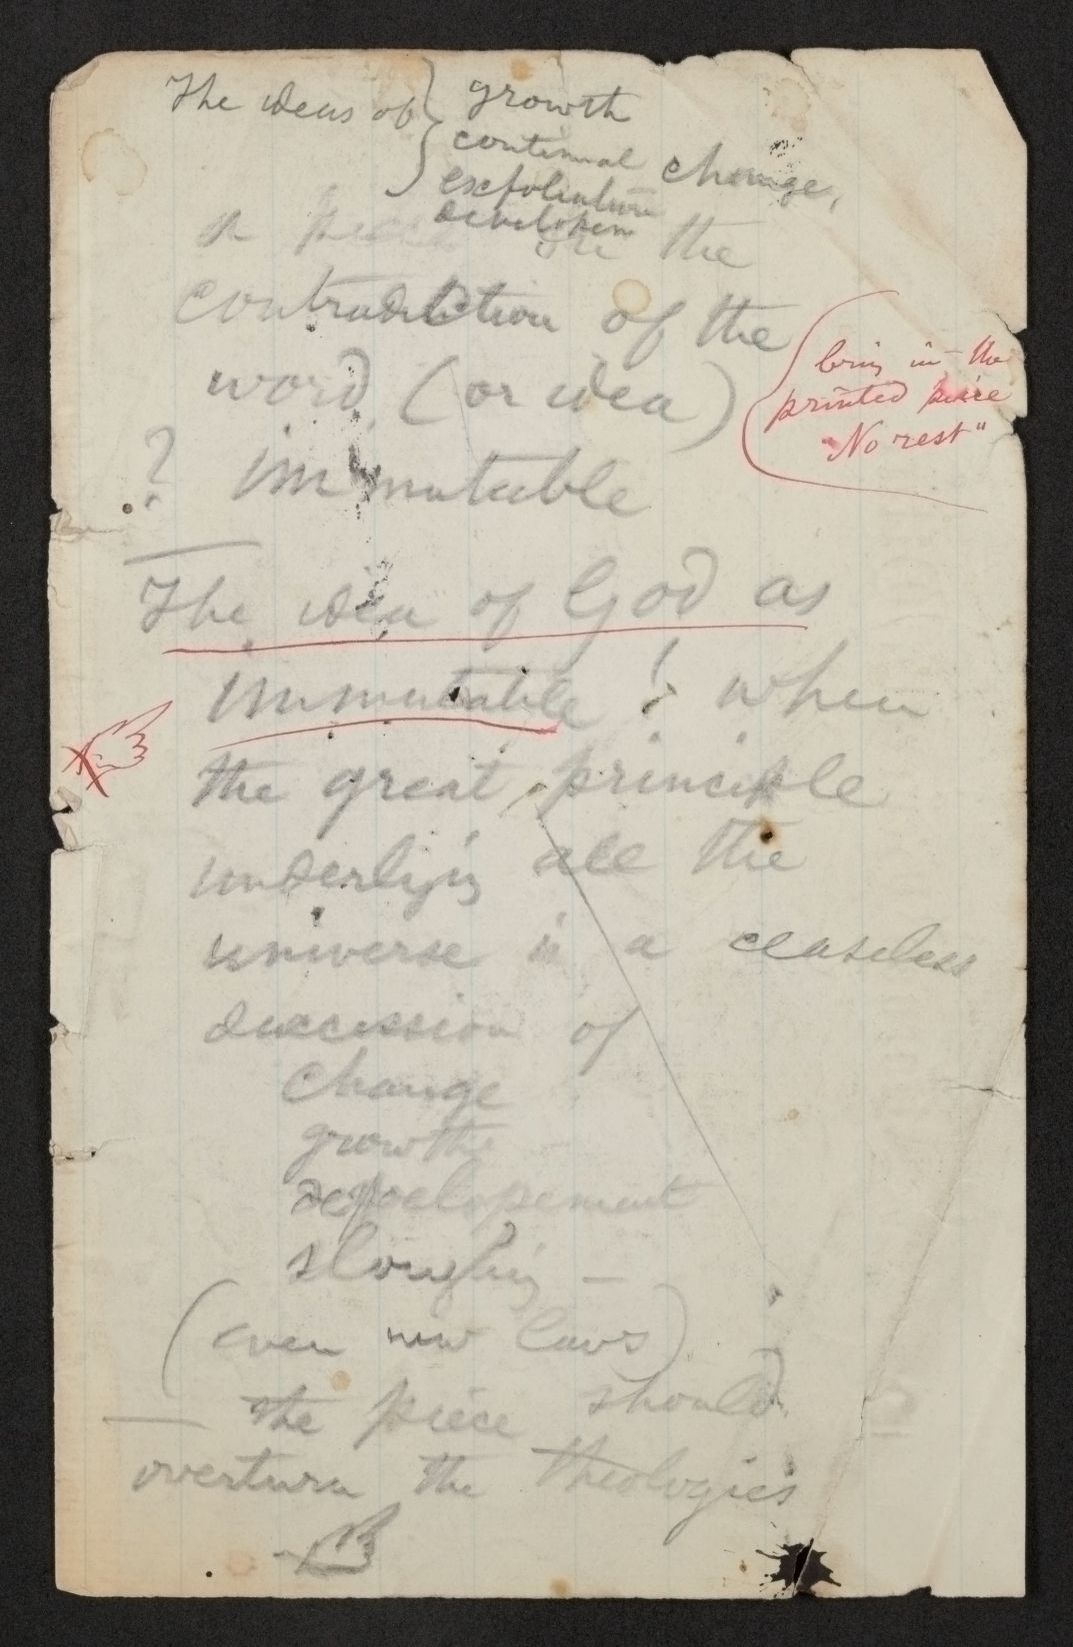 The ideas of { growth
continual change,
exfoliation
developem
a piece on the
contradiction of the
word (or idea)
(bring in the
printed piece
"No rest"
? immutable
The idea of God as
immutable! when
the great principle
underlying all the
universe is a ceaseless
succession of
change
growth
developement
sloughing —
(even new laws)
— the piece should
overturn the theologies